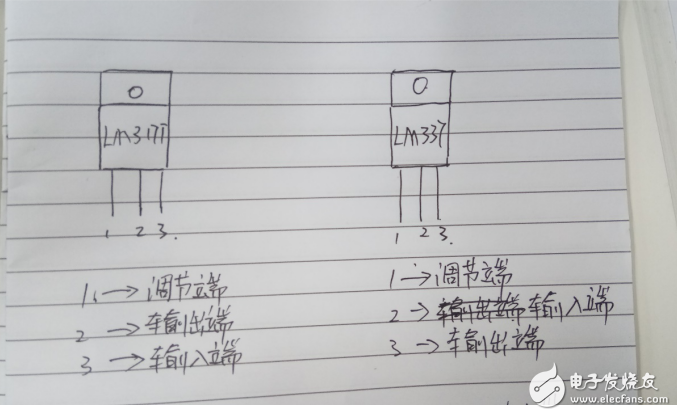 LM317T
1 2 3.
1. → 调节端
2 → 输出端
3 → 输入端
LM337
1 2 3.
1 → 调节端
2 → 输出端 输入端
3 → 输出端
电子发烧友
www.elecfans.com